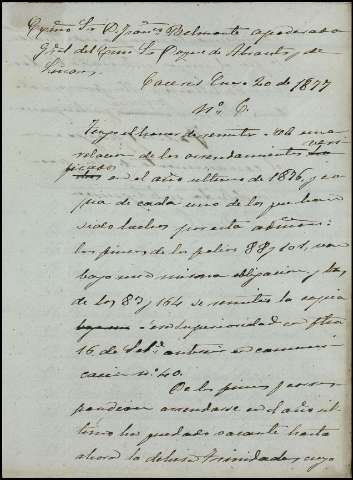 Exmo Sr D. Franco Belmonte apoderado
Gral del Exmo Sr Duque de Abrantes y de
Linares
Caceres Enero 20 de 1877
No. 6.
Tengo el honor de remitir a Vd una
relacion de los arrendamientos veri-
ficados en el año ultimo de 1876, y co-
pia de cada uno de los que han
sido hechos por esta admon:
los pinos de los folios 88 y 101, van
bajo una misma
de los 83 y 164 se remitio la copia
a esa superioridad en fha
16 de Febo. anterior en comuni-
cacion no. 40.
De los pinos que corres-
pondian arrendarse en el año ul-
timo ha quedado vacante hasta
ahora la dehesa Trinidades, cuyo